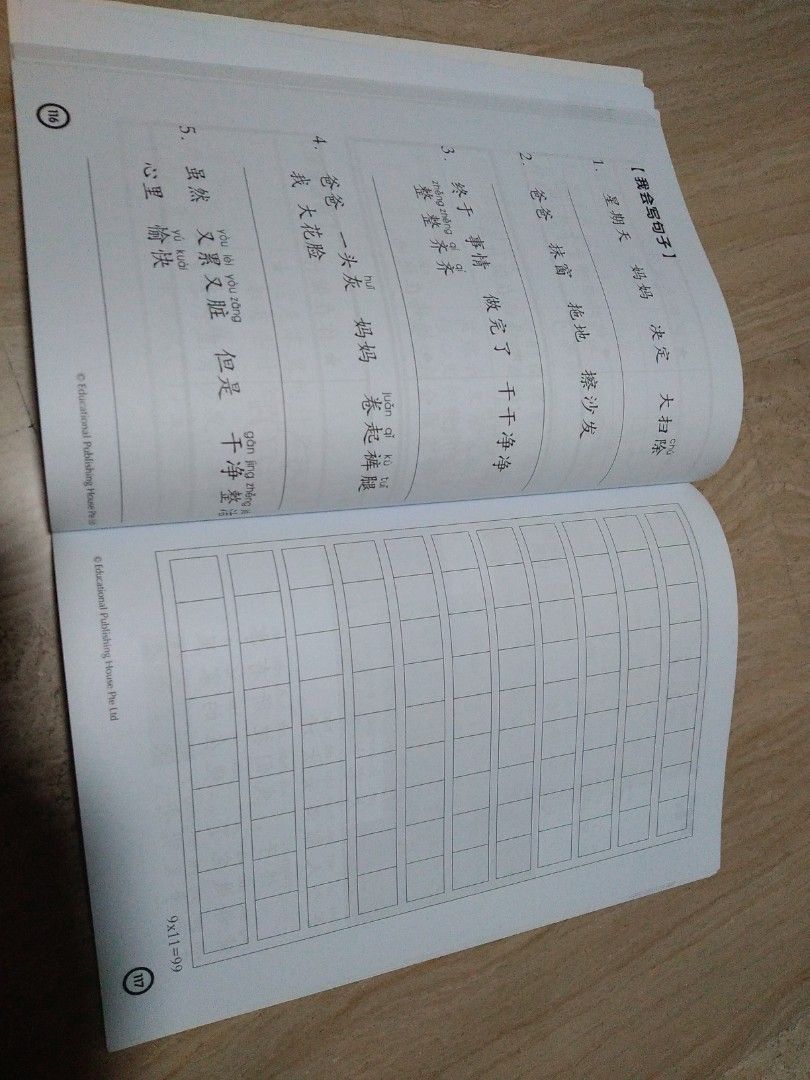 【我会写句子】
1. 星期天 妈妈 决定 大扫除
chú
2. 爸爸 抹窗 拖地 擦沙发
3. 终于 事情 做完了 干干净净
zhěng zhěng qí qí
整整齐齐
4. 爸爸 一头灰 妈妈 卷起裤腿
huī juǎn qǐ kù tuǐ
我 大花脸
5. 虽然 又累又脏 但是 干净整
yòu lèi yòu zāng gān jìng zhěng
心里 愉快
yú kuài
116
© Educational Publishing House Pte Ltd
9x11=99
117
© Educational Publishing House Pte Ltd